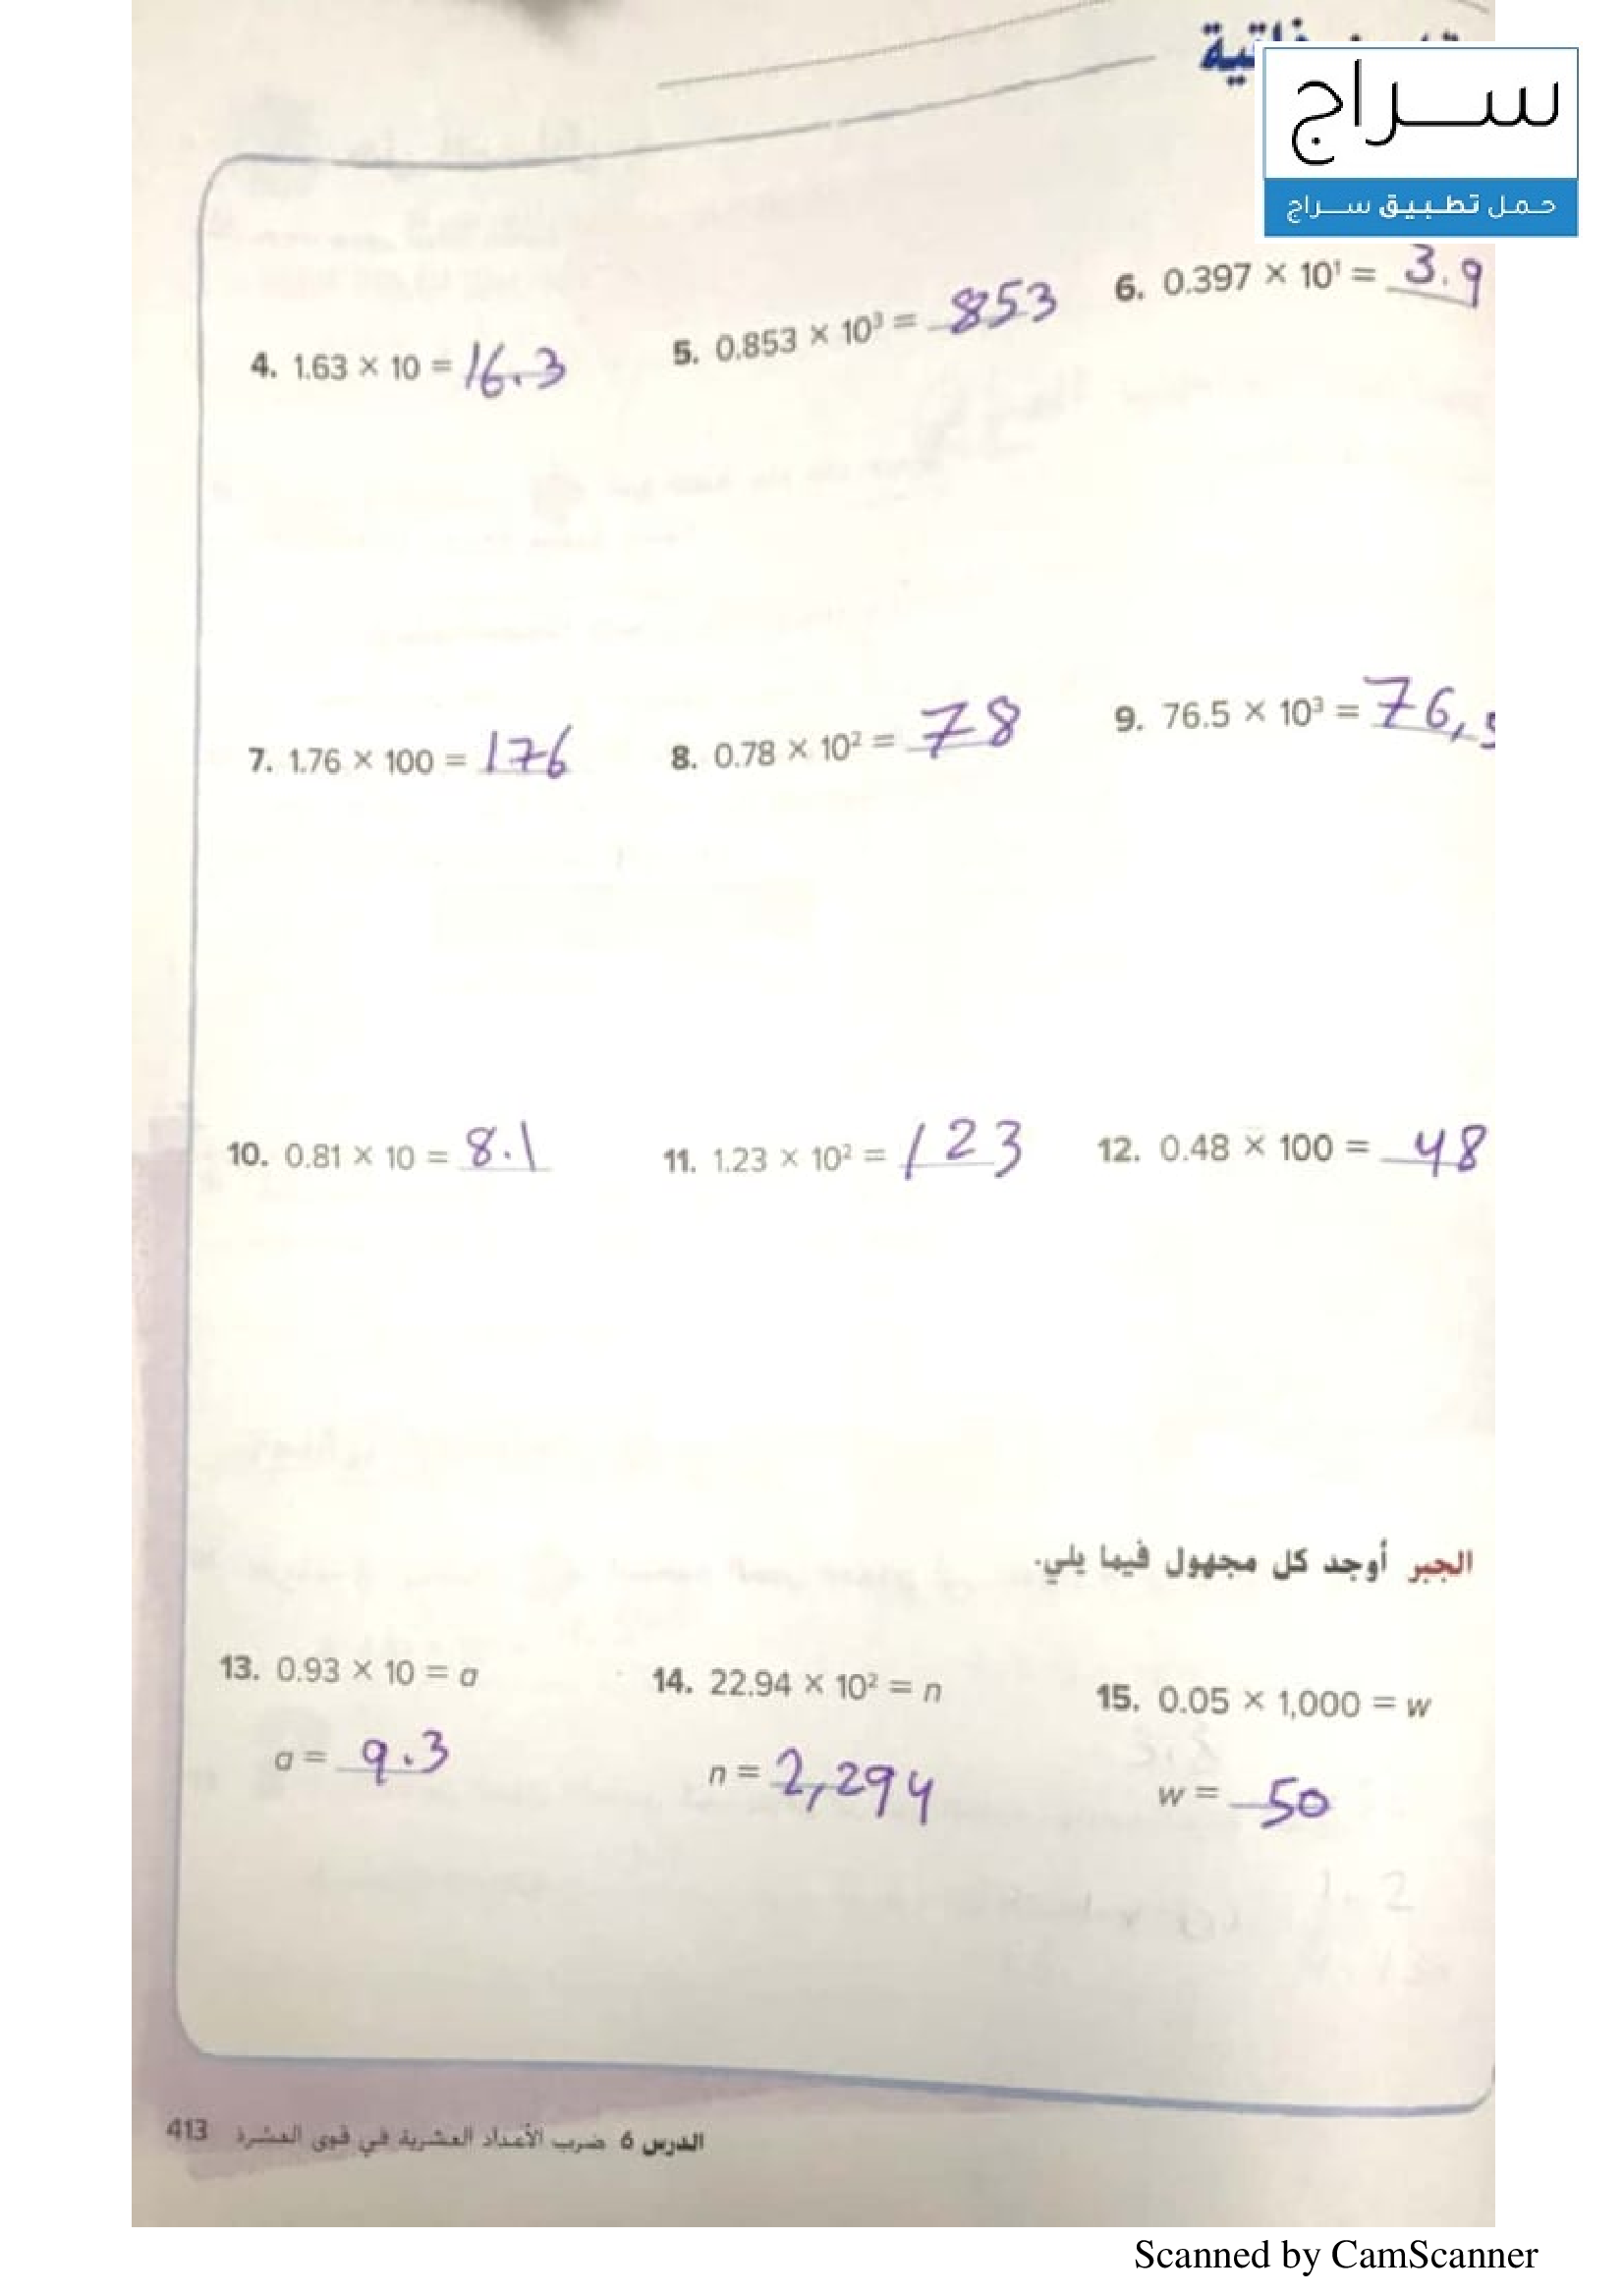 سراج
حمل تطبيق سراج
4. 1.63 × 10 = 16.3
5. 0.853 × 10³ = 853
6. 0.397 × 10¹ = 3.9
7. 1.76 × 100 = 176
8. 0.78 × 10² = 78
9. 76.5 × 10³ = 76,5
10. 0.81 × 10 = 8.1
11. 1.23 × 10² = 123
12. 0.48 × 100 = 48
الجبر أوجد كل مجهول فيما يلي.
13. 0.93 × 10 = a
14. 22.94 × 10² = n
15. 0.05 × 1,000 = w
a = 9.3
n = 2,294
w = 50
الدرس 6 ضرب الأعداد العشرية في قوى العشرة 413
Scanned by CamScanner